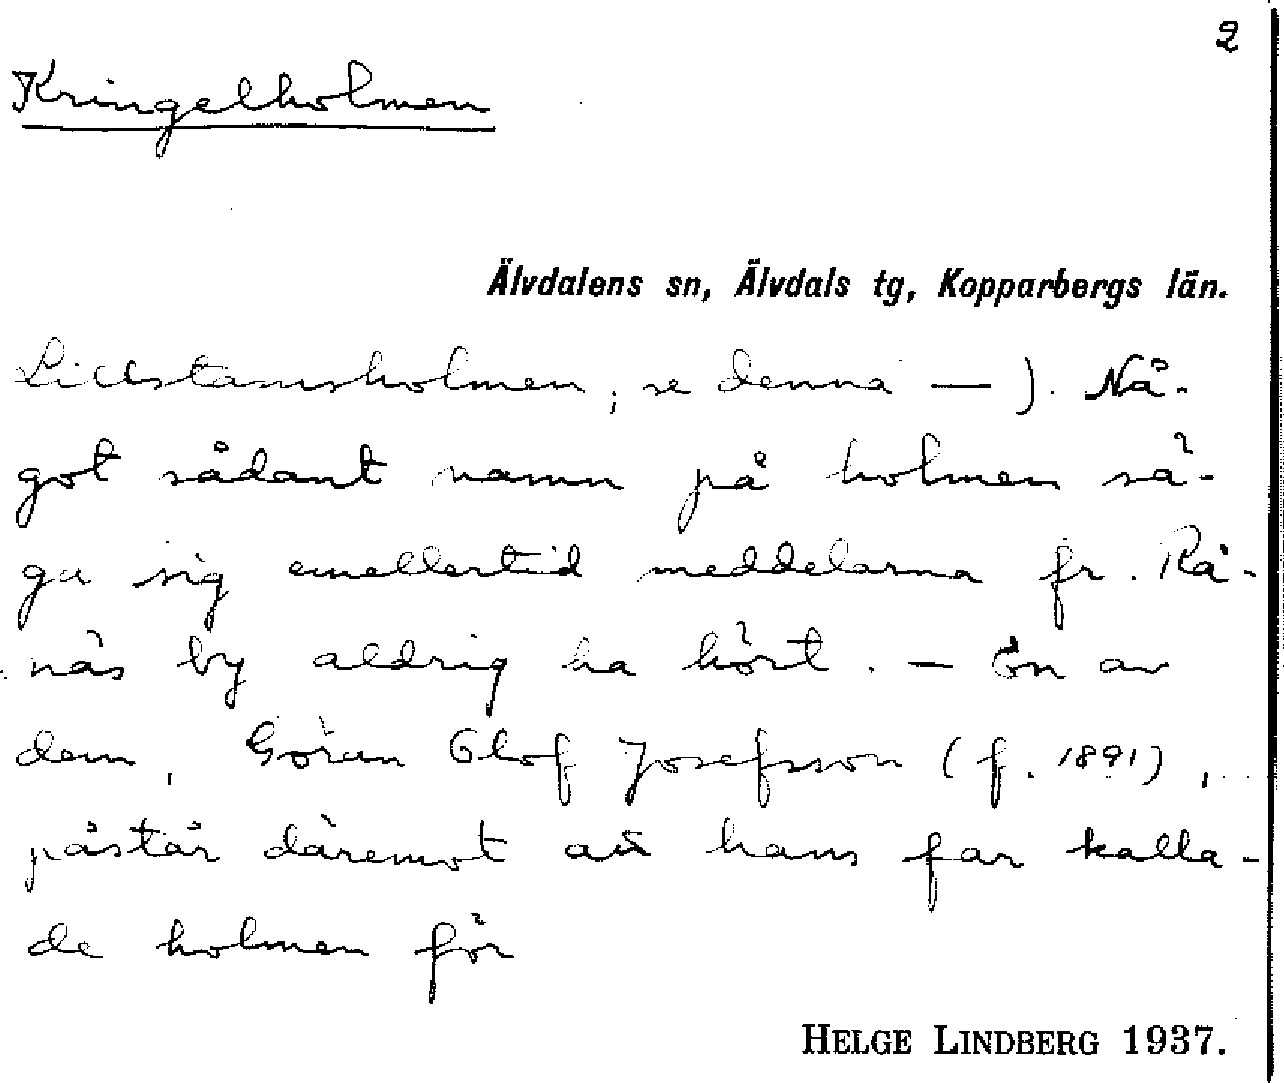 2
Kringelholmen
Älvdalens sn, Älvdals tg, Kopparbergs län.
holmen, se denna — ). Nå-
got sådant namn på holmen så-
ga sig emellertid meddelarna fr. Rå-
näs by aldrig ha hört. — En av
dem, Göran Olof Josefsson (f. 1891),
påstår däremot att hans far kalla-
de holmen för
HELGE LINDBERG 1937.